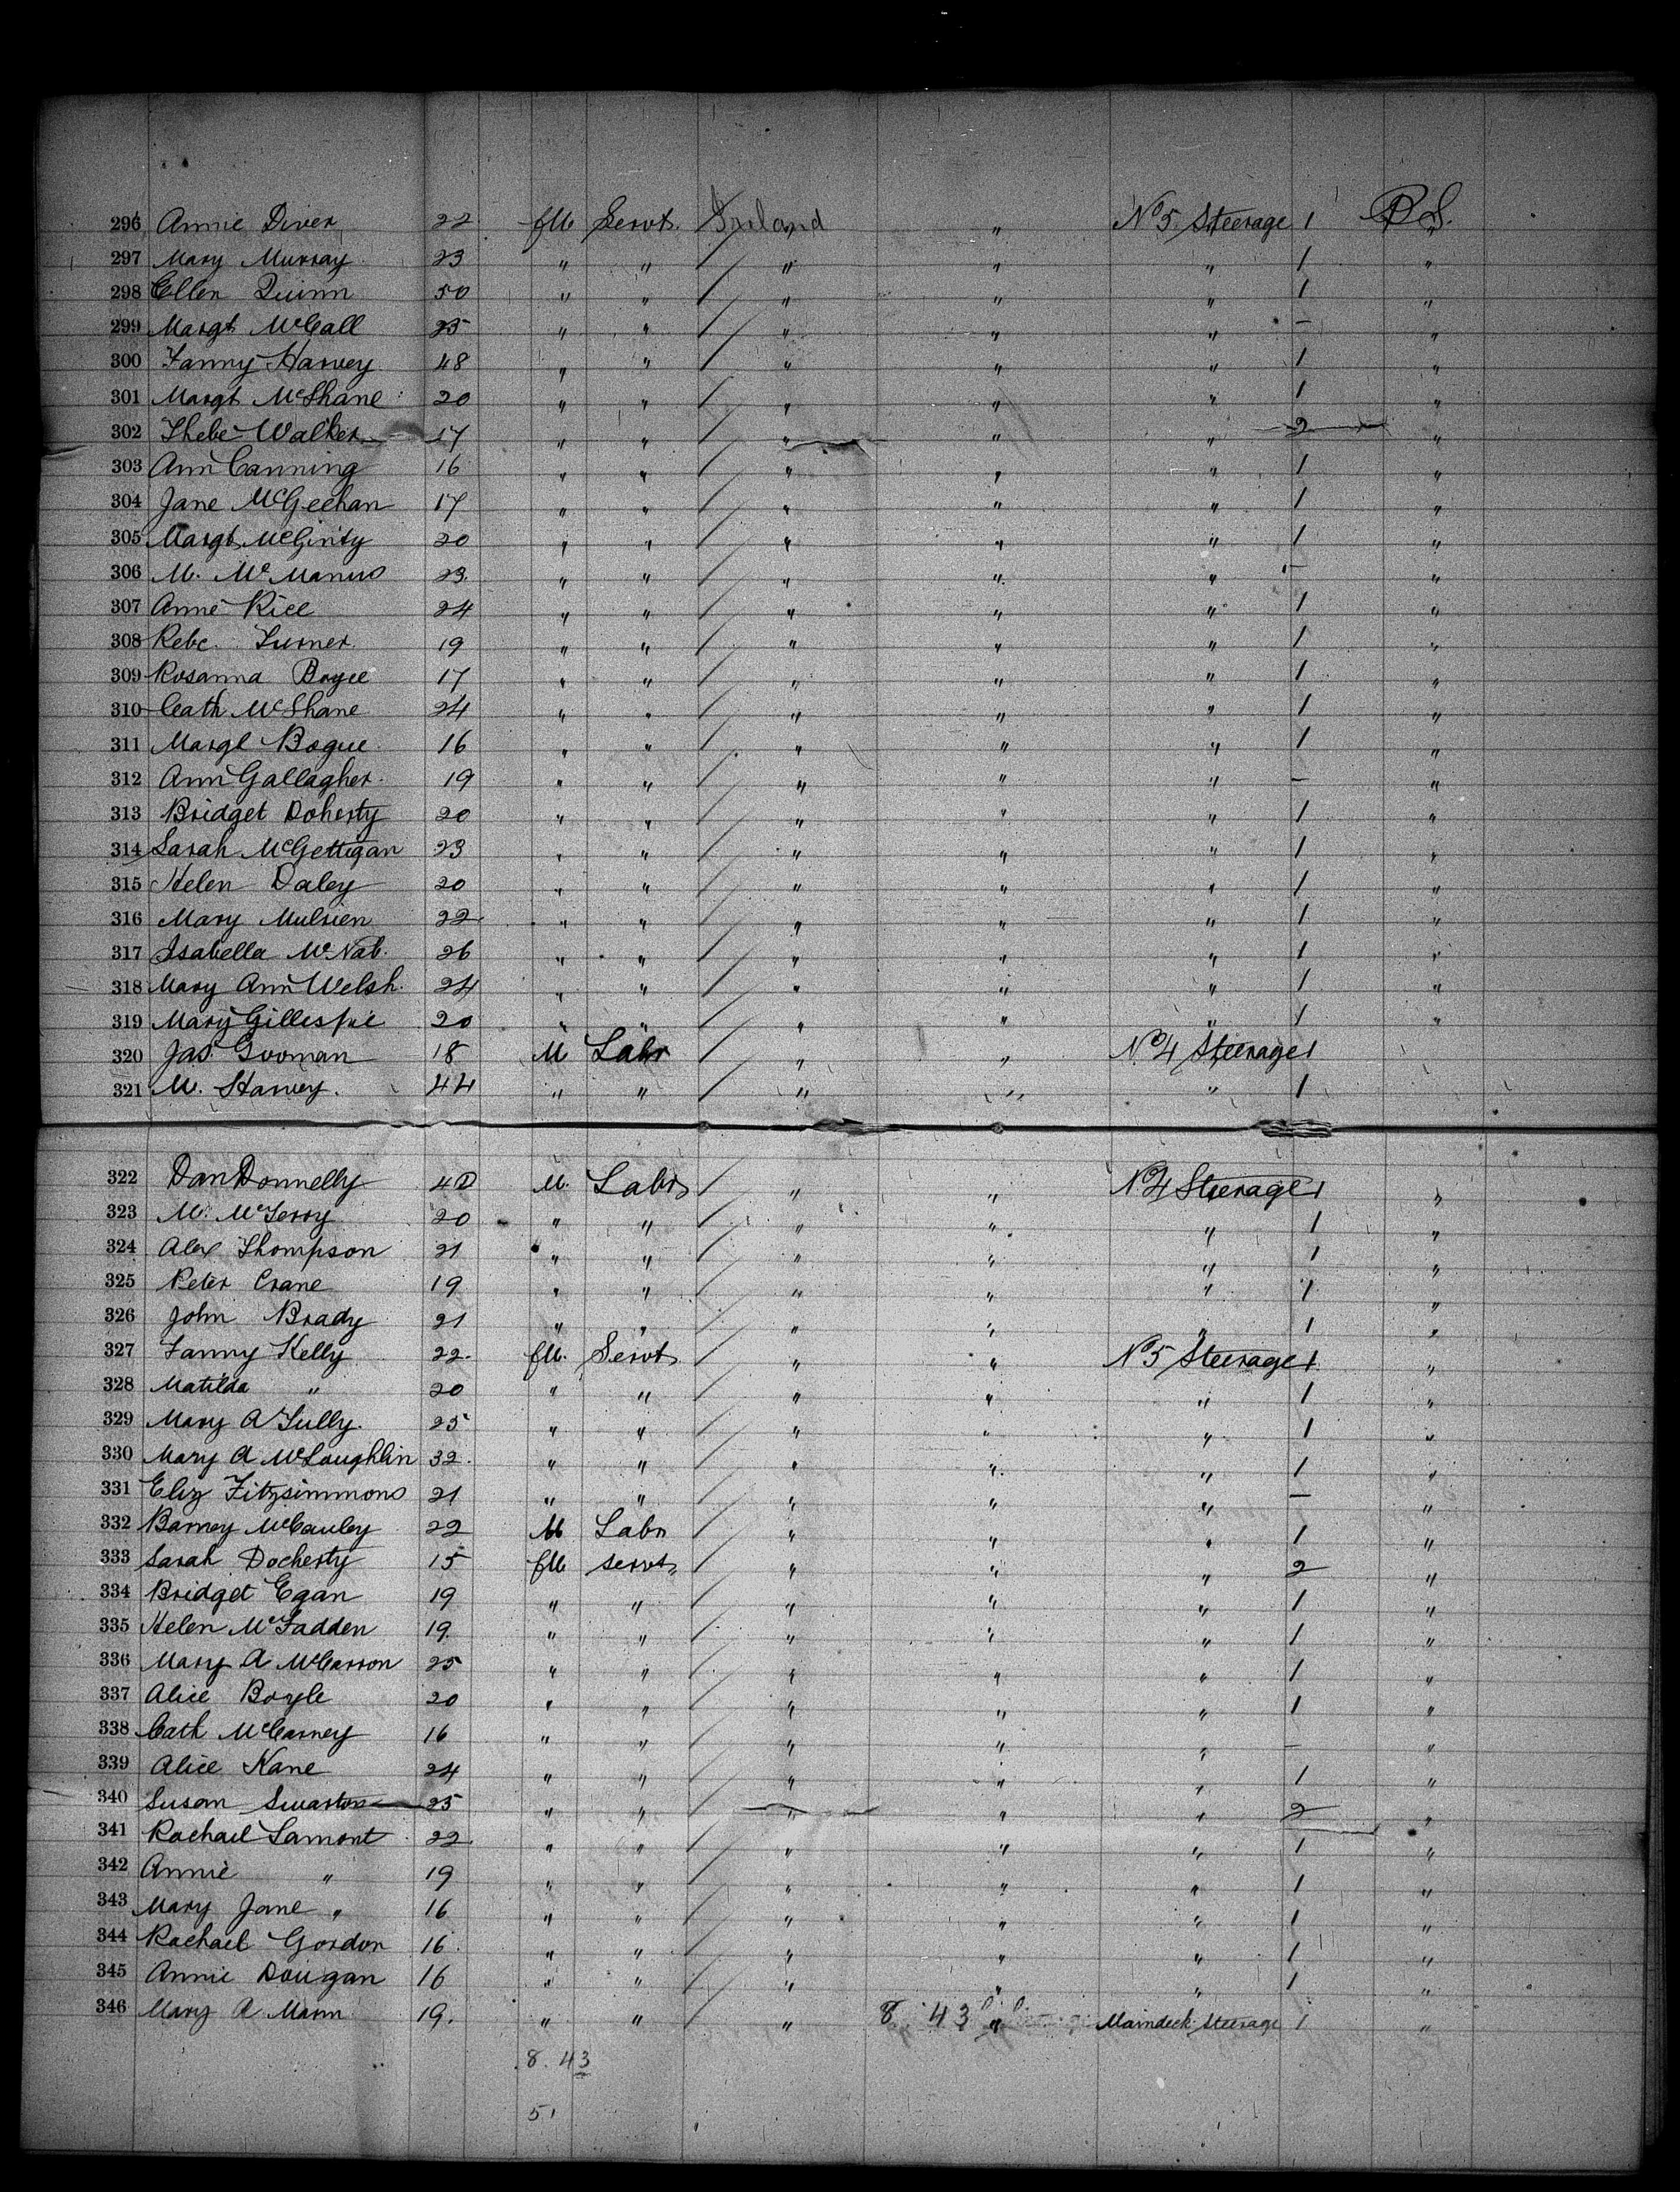 296 Annie Diver 22 fM Servt. Ireland " No 5 Steerage 1 P.S.
297 Mary Murray 23 " " " " " 1 "
298 Ellen Quinn 50 " " " " " 1 "
299 Margt McCall 25 " " " " " — "
300 Fanny Harvey 48 " " " " " 1 "
301 Margt McShane 20 " " " " " 1 "
302 Phebe Walker 17 " " " " " 2 "
303 Ann Canning 16 " " " " " 1 "
304 Jane McGeehan 17 " " " " " 1 "
305 Margt McGinty 20 " " " " " 1 "
306 M. McManus 23. " " " " " — "
307 Anne Rice 24 " " " " " 1 "
308 Rebc. Turner 19 " " " " " 1 "
309 Rosanna Boyce 17 " " " " " 1 "
310 Cath McShane 24 " " " " " 1 "
311 Margt Bogue 16 " " " " " 1 "
312 Ann Gallagher 19 " " " " " — "
313 Bridget Doherty 20 " " " " " 1 "
314 Sarah McGettigan 23 " " " " " 1 "
315 Helen Daley 20 " " " " " 1 "
316 Mary 22 " " " " " 1 "
317 Isabella McNab. 26 " " " " " 1 "
318 Mary Ann Welsh 24 " " " " " 1 "
319 Mary Gillespie 20 " " " " " 1 "
320 Jas. 18 M Labr " " No 4 Steerage 1
321 M. Harvey. 44 " " " " " 1
322 Dan Donnelly 40 M. Labr " " No 4 Steerage 1 "
323 M. 20 " " " " " 1 "
324 Alex Thompson 21 " " " " " 1 "
325 Peter Crane 19 " " " " " 1 "
326 John Brady 21 " " " " " 1 "
327 Fanny Kelly 22. fM. Servt " " No 5 Steerage 1 "
328 Matilda " 20 " " " " " 1 "
329 Mary A Tully. 25 " " " " " 1 "
330 Mary A McLaughlin 32. " " " " " 1 "
331 Eliz Fitzsimmons 21 " " " " " — "
332 Barney McCauley 22 M Labr " " " 1 "
333 Sarah Docherty 15 fM servt " " " 2 "
334 Bridget Egan 19 " " " " " 1 "
335 Helen McFadden 19. " " " " " 1 "
336 Mary A McCarron 25 " " " " " 1 "
337 Alice Boyle 20 " " " " " 1 "
338 Cath McCarney 16 " " " " " — "
339 Alice Kane 24 " " " " " 1 "
340 Susan 25 " " " " " 2 "
341 Rachael Lamont 22. " " " " " 1 "
342 Annie " 19 " " " " " 1 "
343 Mary Jane " 16 " " " " " 1 "
344 Rachael Gordon 16. " " " " " 1 "
345 Annie Dougan 16 " " " " " 1 "
346 Mary A Mann 19. " " " 8. 43 " Maindeck Steerage 1 "
8. 43
51